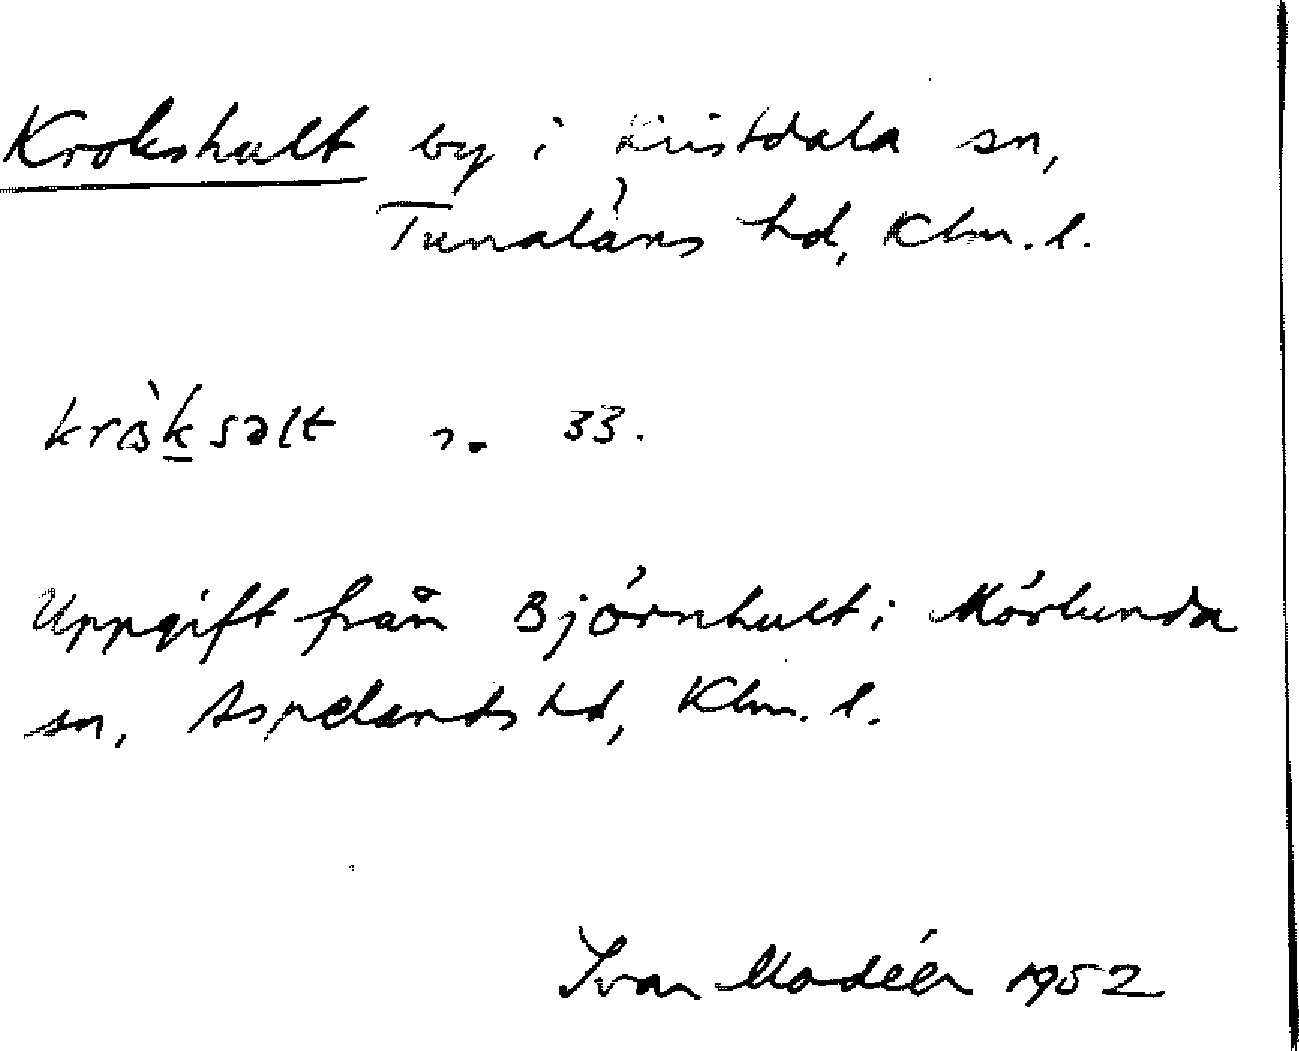 Krokshult by i Kristdala sn,
Tunaläns hd, Klm. l.
33.
Uppgift från Björnhult i Mörlunda
sn, Aspelands hd, Klm. l.
Ivar Modéer 1952